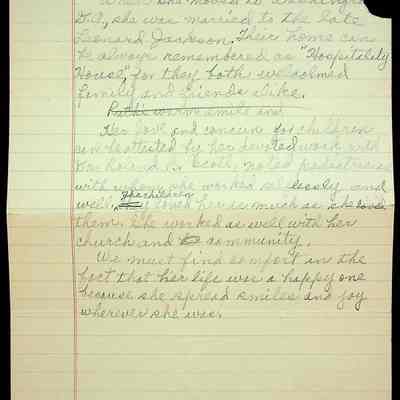 When she moved to Washington
D.C., she was married to the late
Leonard Jackson. Their home can
be always remembered as "Hospitality
House," for they both welcomed
family and friends alike.
Ruth's warm smile and
Her love and concern for children
was attested by her devoted work with
Dr. Roland B. Scott, noted pediatrician
with whom she worked selflessly and
well. The children loved her as much as she loved
them. She worked as well with her
church and community.
We must find comfort in the
fact that her life was a happy one
because she spread smiles and joy
wherever she was.